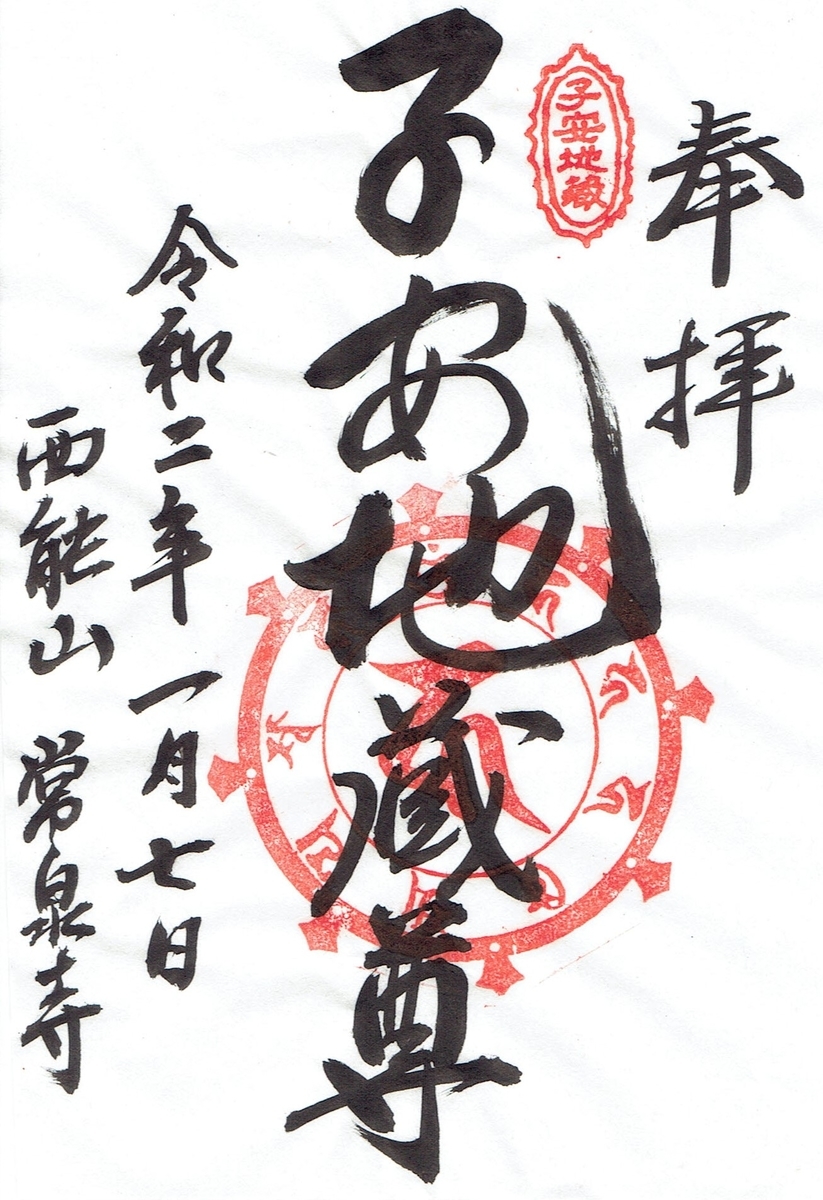 奉拝
子安地蔵
子安地蔵尊
令和二年一月七日
西能山 常泉寺